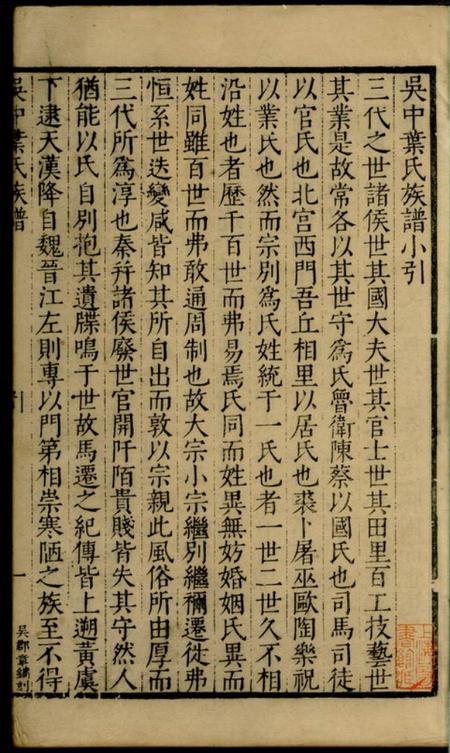 吳中葉氏族譜小引
三代之世諸侯世其國大夫世其官士世其田里百工技藝世
其業是故常各以其世守爲氏魯衛陳蔡以國氏也司馬司徒
以官氏也北宮西門吾丘相里以居氏也裘卜屠巫歐陶樂祝
以業氏也然而宗別爲氏姓統于一氏也者一世二世久不相
沿姓也者歷千百世而弗易焉氏同而姓異無妨婚姻氏異而
姓同雖百世而弗敢通周制也故大宗小宗繼別繼禰遷徙弗
恒系世迭變咸皆知其所自出而敦以宗親此風俗所由厚而
三代所爲淳也秦幷諸侯廢世官開阡陌貴賤皆失其守然人
猶能以氏自別抱其遺牒鳴于世故馬遷之紀傳皆上遡黃虞
下逮天漢降自魏晉江左則專以門第相崇寒陋之族至不得
吳中葉氏族譜
一
吳郡章鏞刻